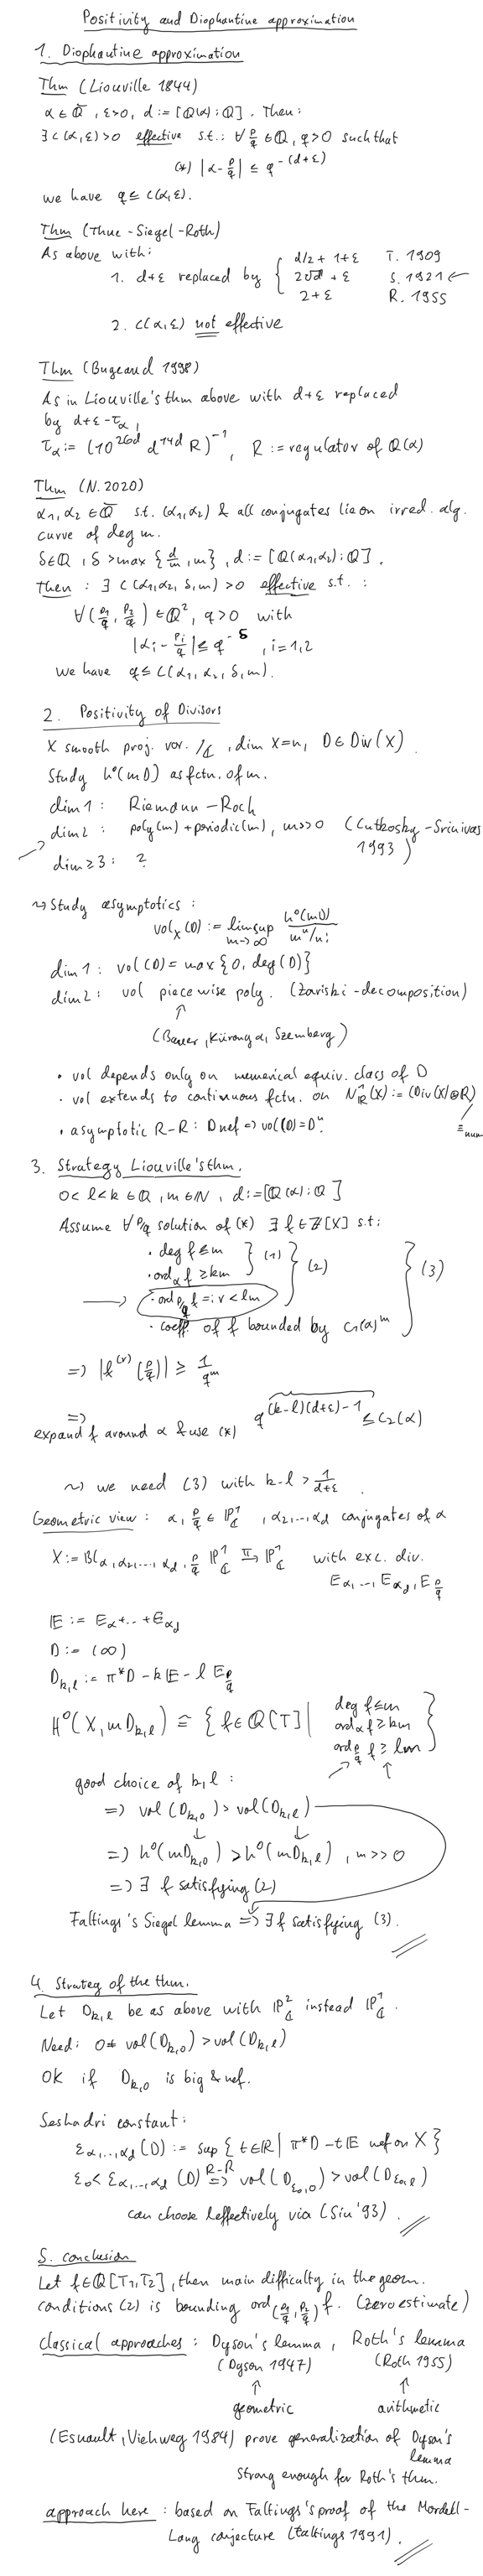 Positivity and Diophantine approximation
1. Diophantine approximation
Thm (Liouville 1844)
α ∈ Q̄, ε>0, d := [Q(α):Q]. Then:
∃ c(α,ε)>0 effective s.t.: ∀ p/q ∈ Q, q>0 such that
(*) |α - p/q| ≤ q^-(d+ε)
we have q ≤ c(α,ε).
Thm (Thue-Siegel-Roth)
As above with:
1. d+ε replaced by { d/2 + 1+ε T. 1909
2√d + ε S. 1921 ←
2+ε R. 1955
2. c(α,ε) not effective
Thm (Bugeaud 1998)
As in Liouville's thm above with d+ε replaced
by d+ε-τ_α,
τ_α := (10^26d d^14d R)^-1, R := regulator of Q(α)
Thm (N. 2020)
α1, α2 ∈ Q̄ s.t. (α1,α2) & all conjugates lie on irred. alg.
curve of deg m.
δ∈Q, δ > max {d/m, m}, d := [Q(α1,α2):Q].
Then : ∃ c(α1,α2,δ,m) >0 effective s.t. :
∀ (p1/q, p2/q) ∈ Q², q>0 with
|αi - pi/q| ≤ q^-δ, i=1,2
we have q ≤ c(α1,α2,δ,m).
2. Positivity of Divisors
X smooth proj. var. /C, dim X=n, D ∈ Div(X)
Study h⁰(mD) as fctn. of m.
dim 1: Riemann-Roch
dim 2: poly(m) + periodic(m), m>>0 (Cutkosky-Srinivas
1993)
dim ≥ 3: ?
⇝ Study asymptotics :
vol_X(D) := limsup_{m→∞} h⁰(mD) / (m^n/n!)
dim 1: vol(D) = max {0, deg(D)}
dim 2: vol piecewise poly. (Zariski-decomposition)
↑
(Bauer, Küronya, Szemberg)
• vol depends only on numerical equiv. class of D
• vol extends to continuous fctn. on N¹_R(X) := (Div(X)⊗R)/≡num
• asymptotic R-R: D nef ⇒ vol(D) = D^n.
3. Strategy Liouville's thm.
0< l<k ∈ Q, m∈N, d:=[Q(α):Q]
Assume ∀ p/q solution of (*) ∃ f∈Z[X] s.t:
• deg f ≤ m
• ord_α f ≥ km } (1)
→ • ord_p/q f =: r < lm } (2)
• coeff. of f bounded by c1(α)^m } (3)
⇒ |f^(r)(p/q)| ≥ 1/q^m
⇒ q^((k-l)(d+ε)-1) ≤ c2(α)
expand f around α & use (*)
⇝ we need (3) with k-l > 1/(d+ε).
Geometric view : α, p/q ∈ P¹_C, α2,...,αd conjugates of α
X := Bl_{α,α2,...,αd,p/q} P¹_C →π P¹_C with exc. div.
E_α,..., E_αd, E_p/q
E := E_α+..+E_αd
D := (∞)
D_k,l := π*D - kE - l E_p/q
H⁰(X, mD_k,l) ≅ { f∈Q[T] | deg f ≤ m
ord_α f ≥ km
ord_p/q f ≥ lm }
good choice of k,l :
⇒ vol(D_k,0) > vol(D_k,l)
⇒ h⁰(mD_k,0) > h⁰(mD_k,l), m>>0
⇒ ∃ f satisfying (2)
Faltings's Siegel lemma ⇒ ∃ f satisfying (3).
4. Strateg of the thm.
Let D_k,l be as above with P²_C instead P¹_C.
Need: 0≠ vol(D_k,0) > vol(D_k,l)
OK if D_k,0 is big & nef.
Seshadri constant:
ε_{α1,..,αd}(D) := sup { t∈R | π*D - tE nef on X }
ε0 < ε_{α1,..,αd}(D) ⇒^{R-R} vol(D_{ε0,0}) > vol(D_{ε0,l})
can choose l effectively via (Siu '93).
5. conclusion
Let f∈Q[T1,T2], then main difficulty in the geom.
conditions (2) is bounding ord_(p1/q, p2/q) f. (zero estimate)
classical approaches : Dyson's lemma, Roth's lemma
(Dyson 1947) (Roth 1955)
↑ ↑
geometric arithmetic
(Esnault, Viehweg 1984) prove generalization of Dyson's
lemma
strong enough for Roth's thm.
approach here : based on Faltings's proof of the Mordell-
Lang conjecture (Faltings 1991).